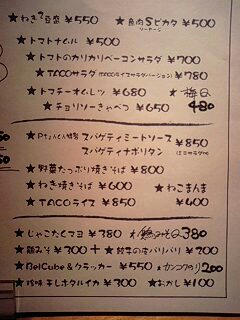 ★ねぎ豆腐 ¥550 ★魚肉Sピカタ ¥500
ソーセージ
★トマトナムル ¥500
★トマトのカリカリベーコンサラダ ¥700
★TACOサラダ(TACOライスサラダバージョン) ¥780
★トマチーオムレツ ¥680 ★梅Q
★チョリソーきゃべつ ¥650 480
★特製 スパゲティミートソース ¥850
スパゲティナポリタン
★野菜たっぷり焼きそば ¥800
★ねぎ焼きそば ¥600 ★ねこまんま
★TACOライス ¥850 ¥400
★じゃこたくマヨ ¥380 380
★鶏みそ ¥300 + ★餃子の皮パリパリ ¥200
★BelCube&クラッカー ¥550 ★カンコウのり200
★珍味 干しホタルイカ ¥300 ★おかし ¥100